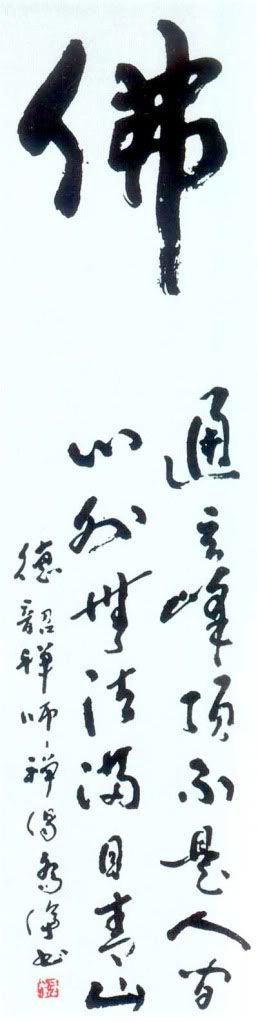 佛
通玄峰頂不是人間
心外無法滿目青山
德韶禪師禪偈